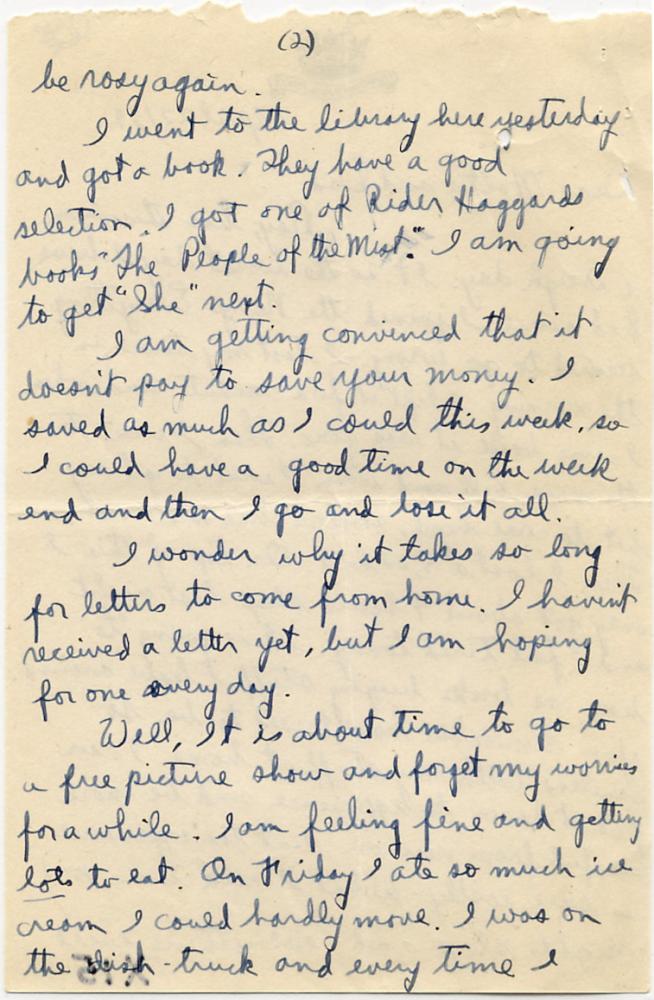 (2)
be rosy again.
I went to the library here yesterday
and got a book. They have a good
selection. I got one of Rider Haggards
books "The People of the Mist." I am going
to get "She" next.
I am getting convinced that it
doesn't pay to save your money. I
saved as much as I could this week, so
I could have a good time on the week
end and then I go and lose it all.
I wonder why it takes so long
for letters to come from home. I haven't
received a letter yet, but I am hoping
for one every day.
Well, It is about time to go to
a free picture show and forget my worries
for a while. I am feeling fine and getting
lots to eat. On Friday I ate so much ice
cream I could hardly move. I was on
the dish-truck and every time I